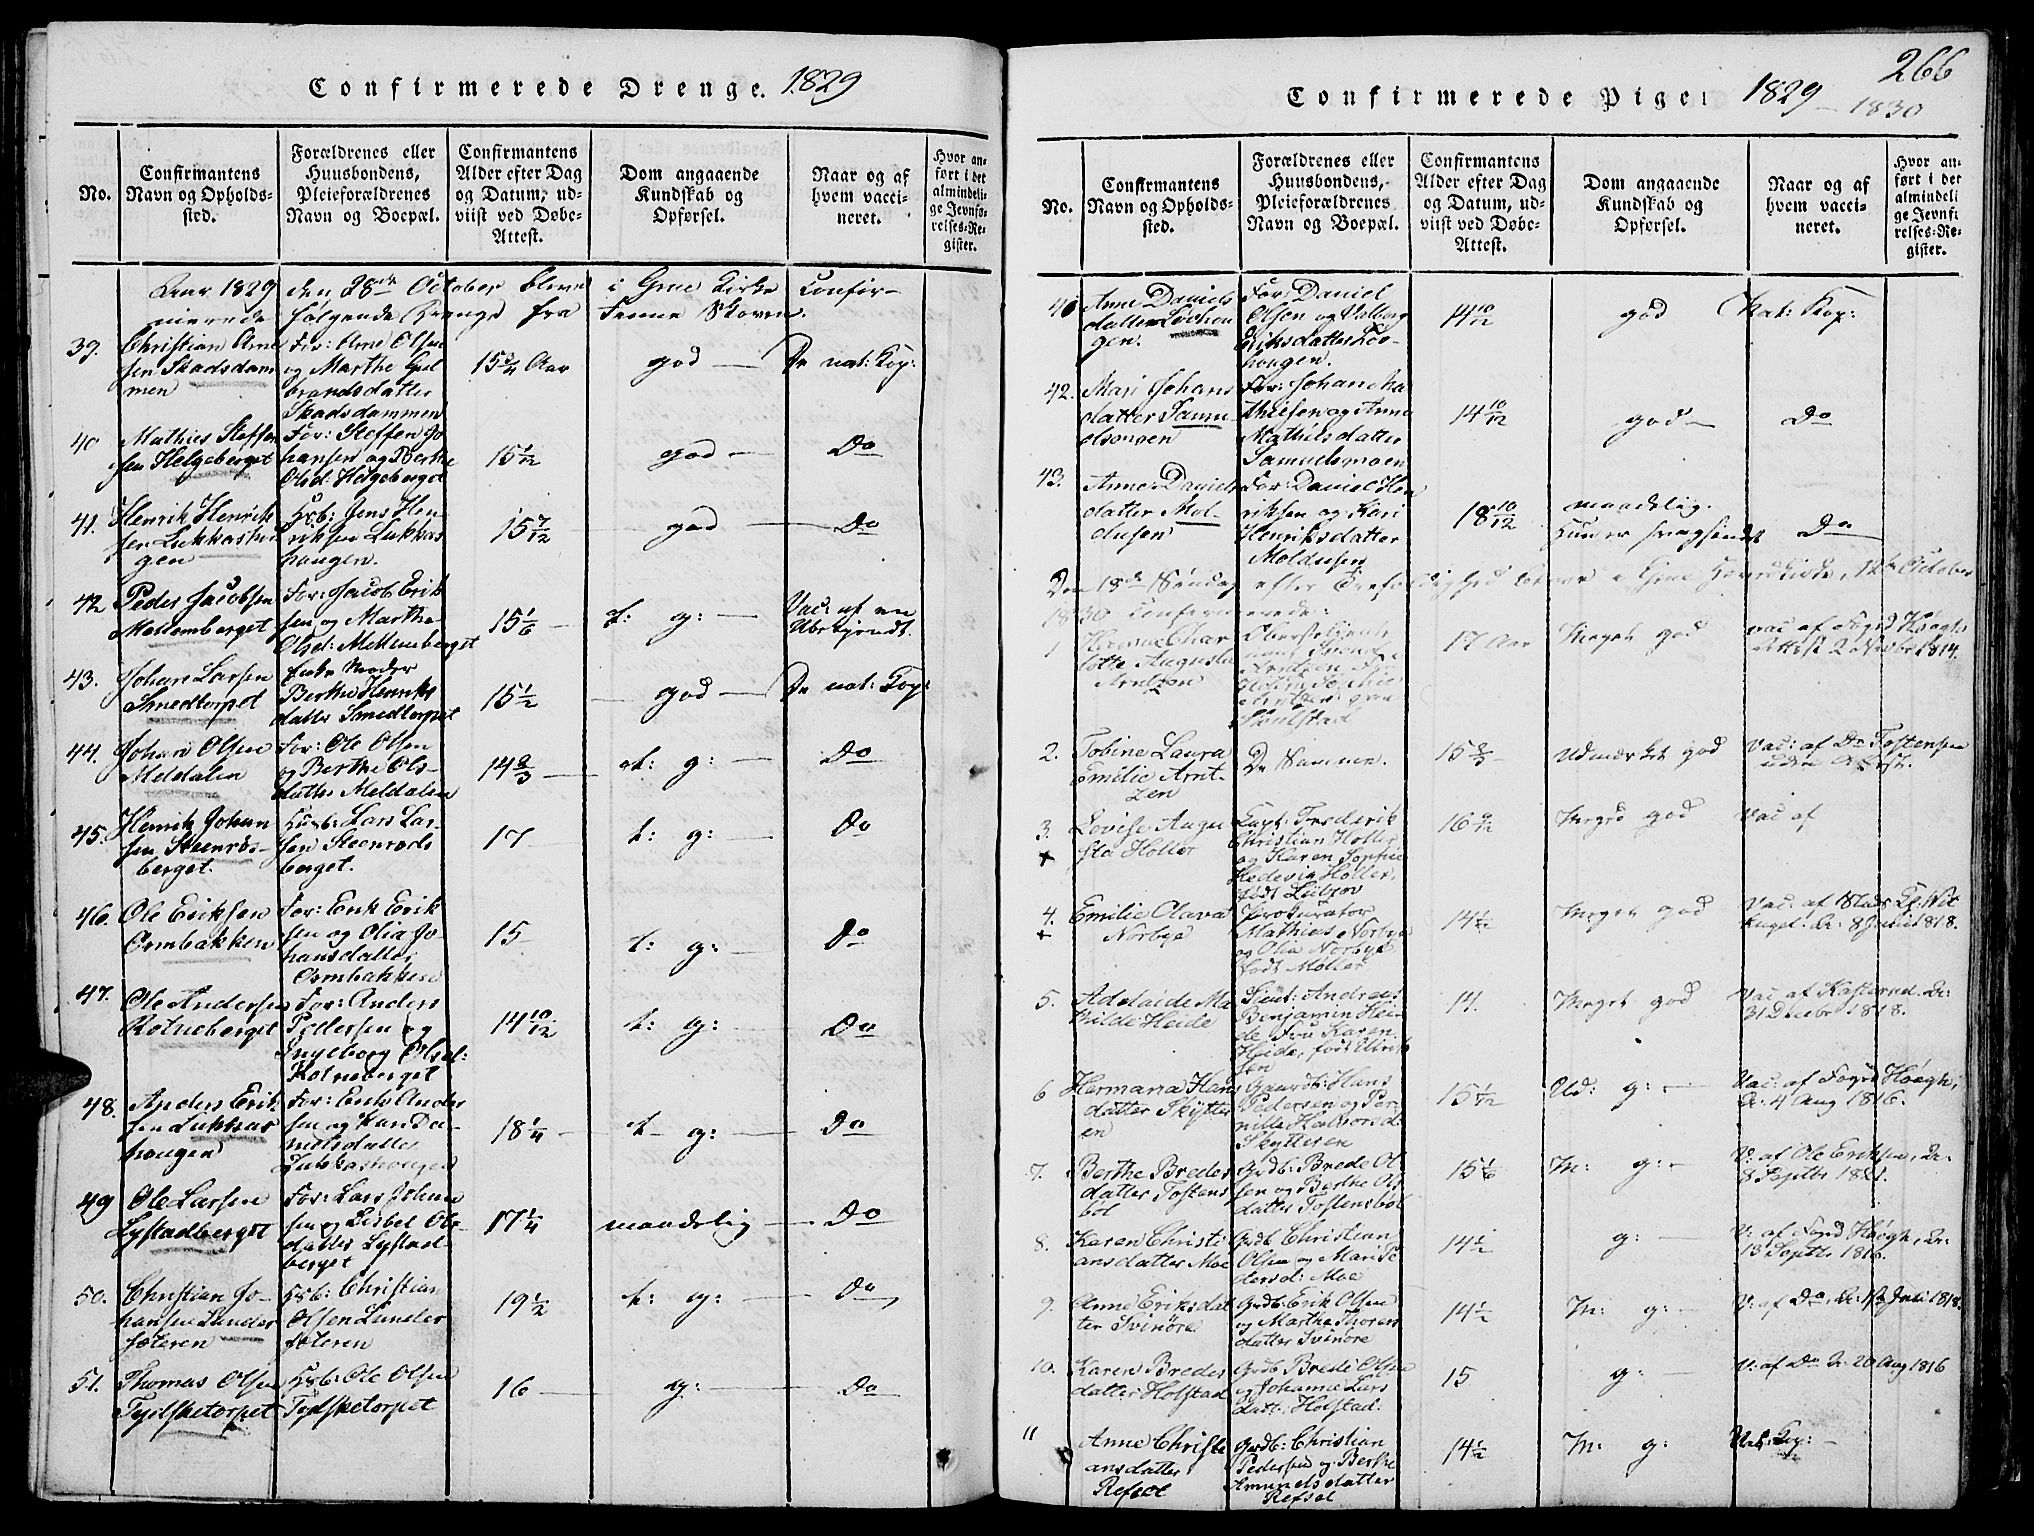 Confirmerede Drenge. 1829
No.
Confirmantens
Navn og Opholds-
sted.
Forældrenes eller
Huusbondens,
Pleieforældrenes
Navn og Boepæl.
Confirmantens
Alder efter Dag
og Datum, ud-
viist ved Døbe-
Attest.
Dom angaaende
Kundskab og
Opførsel.
Naar og af
hvem vacci-
neret.
Hvor an-
ført i det
almindeli-
ge Jevnfø-
relses-Re-
gister.
Aar 1829 den 28de October bleve i Grue Kirke Confir-
merede følgende Drenge fra Finne Skoven.
39. Christian Arne
sen Skadsdam
men
For: Arne Olsen
og Marthe Gul
brandsdatter
Skadsdammen
15 3/4 Aar
god
De nat: Kop:
40 Mathies Steffen
sen Helgeberget
For: Steffen Jo
hansen og Berthe
Olsd: Helgeberget
15 1/12
god
Do
41. Henrik Henrik
sen Lukkashou
gen
Hsb: Jens Hen
riksen Lukkas
hougen.
15 7/12
god
Do
42 Peder Jacobsen
Mollemberget
For: Jacob Erik
sen og Marthe
Olsd: Mollemberget
15 1/6
t: g:
Vac: af en
Ubekjendt.
43. Johan Larsen
Smedtorpet
Enke Moder
Berthe Henriks
datter Smedtorpet
15 1/2
god
De nat: Kop:
44. Johan Olsen
Meldalen
For: Ole Olsen
og Berthe Ols-
datter Meldalen
14 2/3
t: g:
Do
45. Henrik Johan
sen Steenrøs-
berget.
Husb: Lars Lar-
sen Steenrøds
berget.
17
t: g:
Do
46. Ole Eriksen
Ormbakken
For: Erik Erik
sen og Olia Jo-
hansdatter
Ormbakken
15
t: g:
Do
47. Ole Andersen
Rotneberget
For: Anders
Pedersen og
Ingeborg Olsd:
Rotneberget
14 10/12
t: g:
Do
48. Anders Erik
sen Lukkas
hougen
For: Erik Ander
sen og Kari Da-
nielsdatter
Lukkashougen
18 1/4
t g:
Do
49 Ole Larsen
Lystadberget
For: Lars Johan
sen og Lisbet Ols-
datter Lystad-
berget
17 1/4
maadelig
Do
50. Christian Jo-
hansen Lunder
sæteren
Hsb: Christian
Olsen Lunder
sæteren
19 1/2
t: g:
Do
51. Thomas Olsen
Tydsketorpet
Hsb: Ole Olsen
Tydsketorpet
16
g:
Do
266
Confirmerede Piger 1829 - 1830
No.
Confirmantens
Navn og Opholds-
sted.
Forældrenes eller
Huusbondens,
Pleieforældrenes
Navn og Boepæl.
Confirmantens
Alder efter Dag
og Datum, ud-
viist ved Døbe-
Attest.
Dom angaaende
Kundskab og
Opførsel.
Naar og af
hvem vacci-
neret.
Hvor an-
ført i det
almindeli
ge Jevnfø
relses-Re-
gister.
Anne Daniels
datter Løvhou
gen.
For: Daniel
Olsen og Valborg
Eriksdatter Løv-
hougen.
14 10/12
god
Nat: Kop:
42. Mari Johans
datter Samu
elsmoen
For: Johan Ma
thiesen og Anne
Mathiesdatter
Samuelsmoen
14 10/12
god
Do
43. Anne Daniels
datter Mol-
dusen
For: Daniel Hen
riksen og Kari
Henriksdatter
Moldusen
18 10/12
maadelig.
Hun er svagsindet
Do
Den 18de Søndag efter Trefoldighed bleve i Grue Hovedkirke, October
1830 confirmerede:
1 Hanna Char
lotte Augusta
Arntzen
17 Aar
Meget god
vac af Foged Høegh
Attest 2 Novbr 1814.
2. Tobine Laura
Emilie Arnt-
zen
De Samme.
15 2/3
Udmærket god
Vac: af Dr Tostensen
uden Attest.
3. Lovise Augu
sta Holler
Capt: Frederik
Christian Holler
og Karen Sophie
Hedevig Holler,
født Lützow
16 9/12
Meget god
Vac af
4. Emilie Olava
Norbye
Prokurator
Mathias Norbye
og Olia Norbye
født Møller
14 1/2
Meget god
5. Adelaide Ma
thilde Heide
Lieut: Andreas
Benjamin Hei-
de, Fru Karen
Heide, født Ulrik
sen
14.
Meget god
31 Decbr 1818.
6 Hermana Hans
datter Skytter
en
Gaardb: Hans
Pedersen og Per-
nille Halvorsd:
Skytteren
15 1/12
Ud: g:
Vac: af Foged Høegh,
de: 4 Aug 1816.
7. Berthe Bredes
datter Tostens
böl
Grdb: Brede Ol
sen og Berthe Ols
datter Tostensböl
15 1/6
M: g:
V: af Ole Eriksen, de:
8 Septbr 1821.
8. Karen Christi
ansdatter Moe
Grdb Christian
Olsen og Mari Pe
dersd: Moe
14 1/2
g:
V: af Foged Høegh, de:
13 Septbr 1816.
9. Anne Eriksdat
ter Svinöre
Grdb: Erik Olsen
og Marthe Thores
datter Svinöre
14 1/2
M: g:
10. Karen Bredes
datter Holstad
Grdb Brede Olsen
og Johanne Lars
datt: Holstad.
15
g:
V: af Do de 20 Aug 1816
11 Anne Christi
ansdatter
Refset
Grdb: Christian
Pedersen og Berthe
Amundsdatter
Refset
14 1/2
M: g:
Nat: Kop: